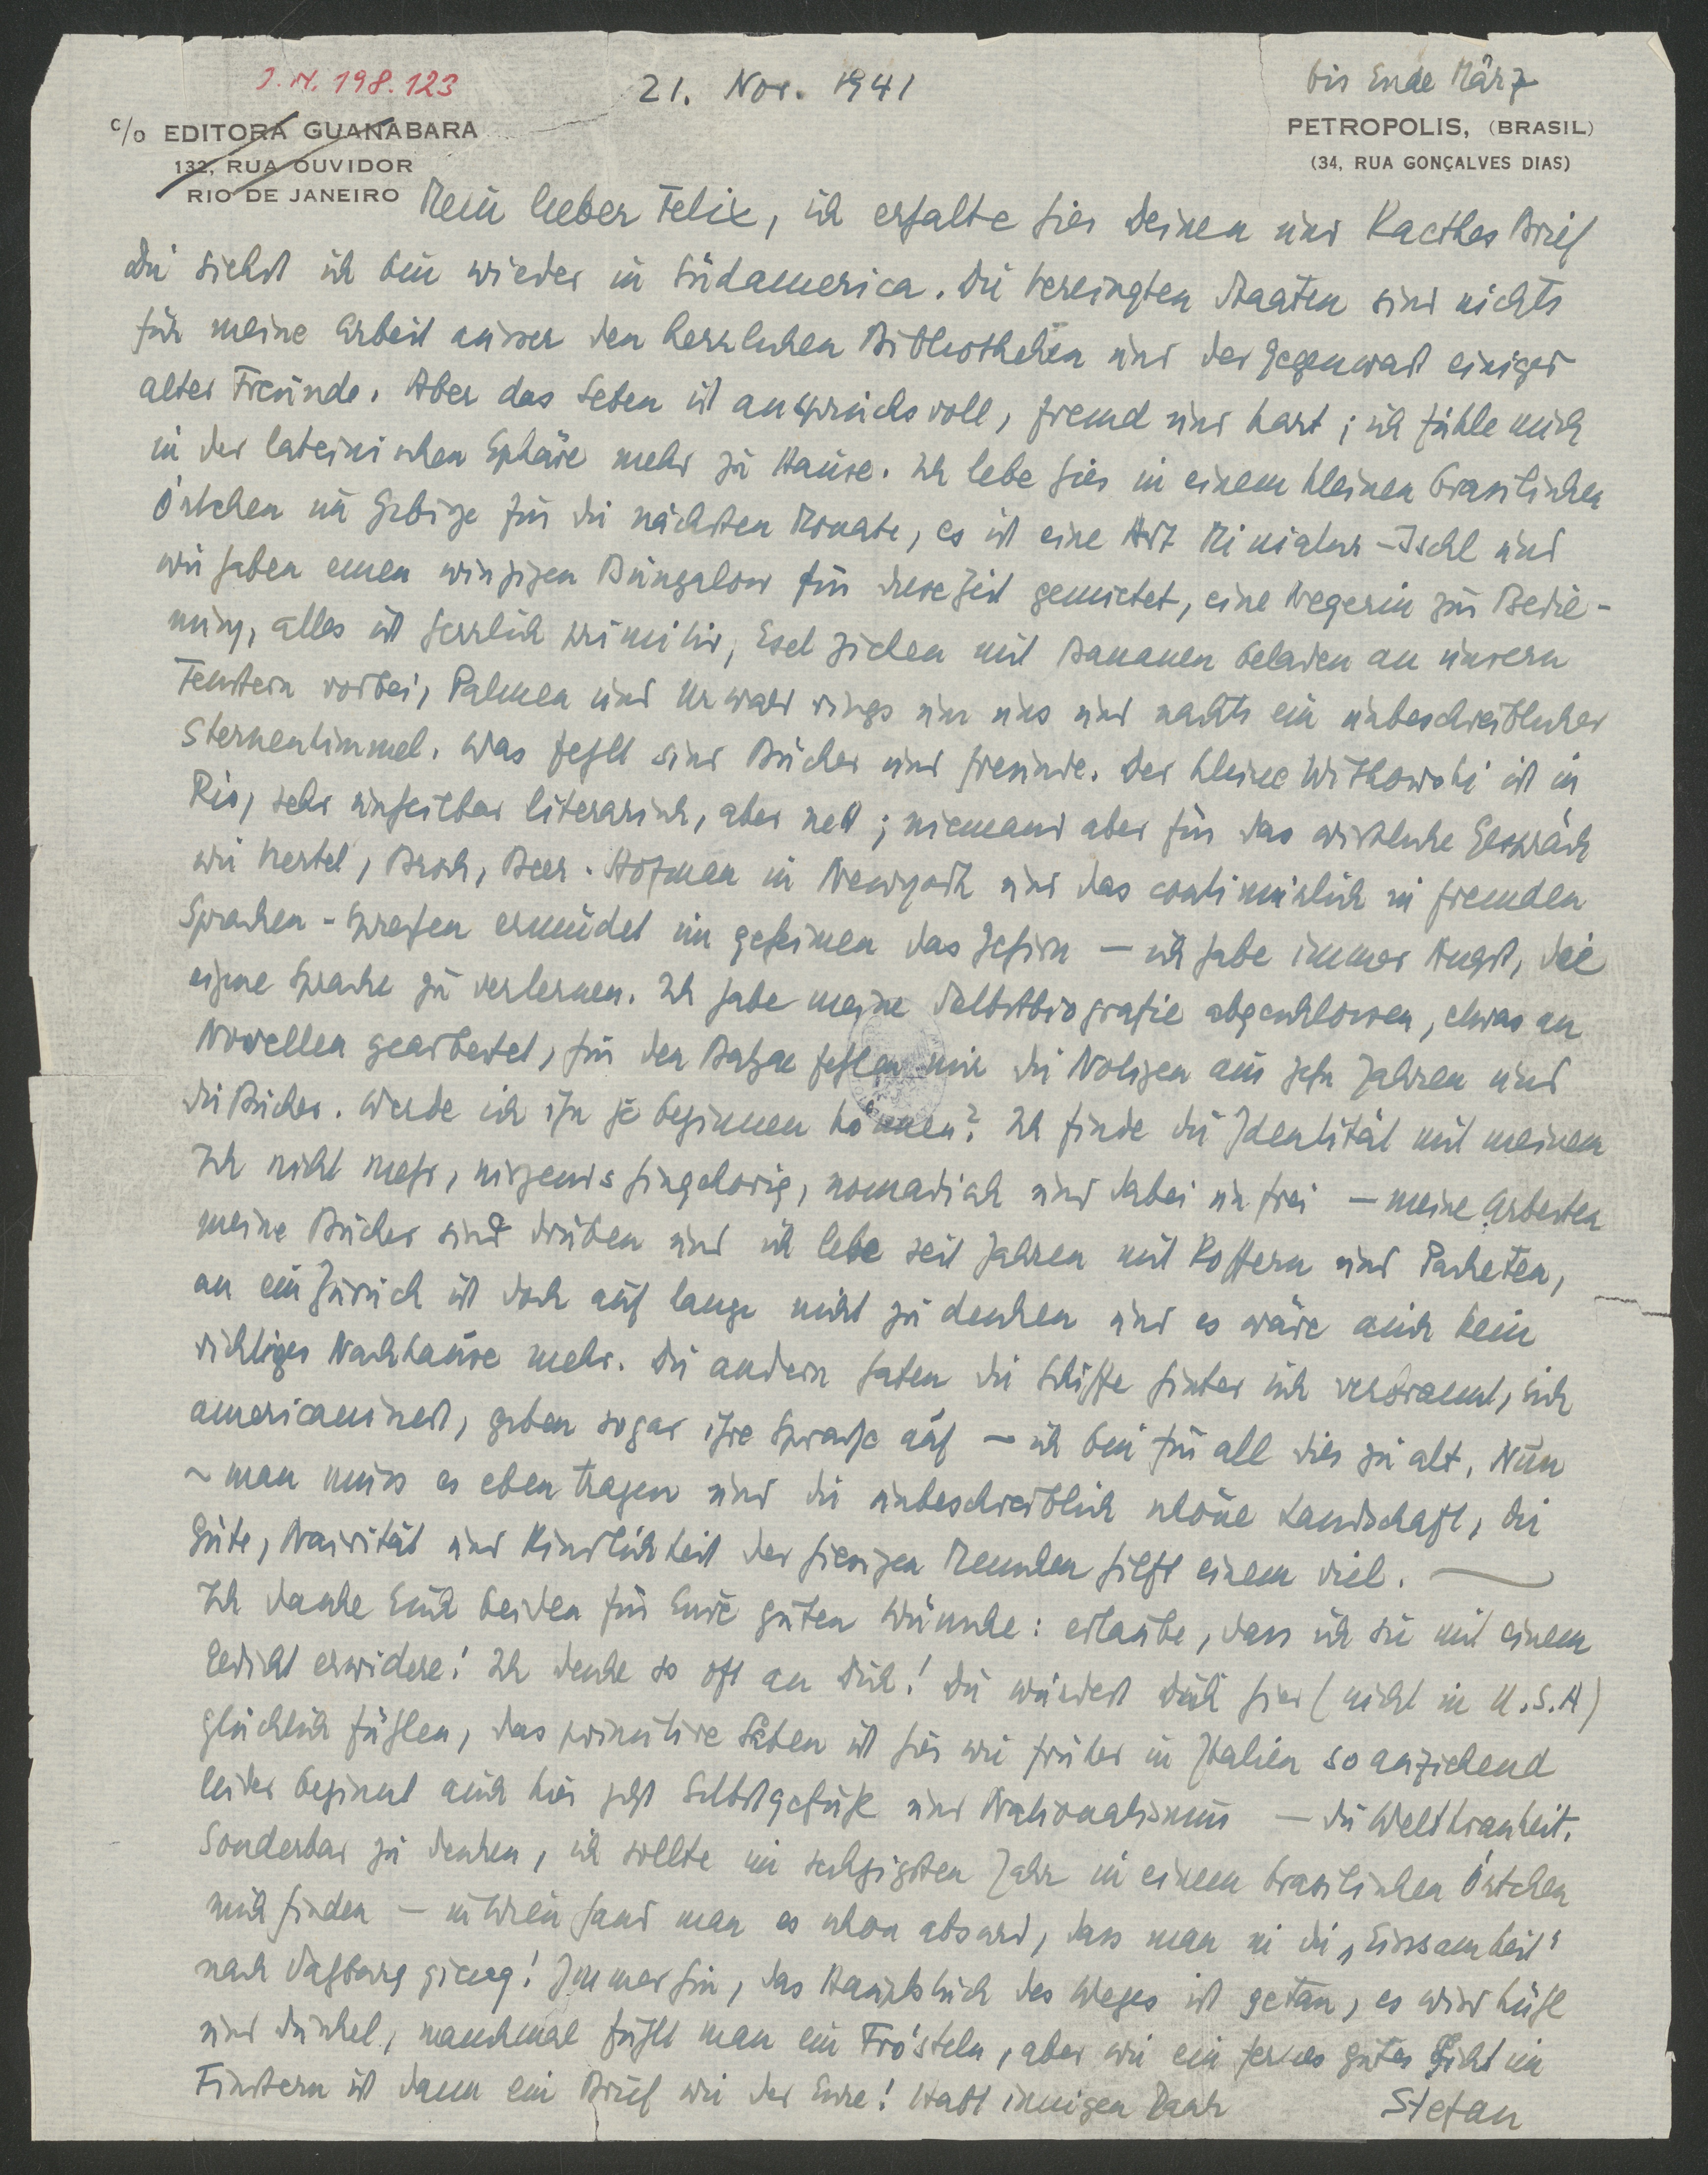 J.N. 198.123
21. Nov. 1941
bis Ende März
c/o EDITORA GUANABARA
132, RUA OUVIDOR
RIO DE JANEIRO
PETROPOLIS, (BRASIL)
(34, RUA GONÇALVES DIAS)
Mein lieber Felix, ich erhalte hier Deinen und Kaethes Brief
Du siehst ich bin wieder in Südamerica. Die Vereinigten Staaten sind nichts
für meine Arbeit ausser den herrlichen Bibliotheken und der Gegenwart einiger
alter Freunde. Aber das Leben ist anspruchsvoll, fremd und hart; ich fühle mich
in der lateinischen Sphäre mehr zu Hause. Ich lebe hier in einem kleinen brasilischen
Örtchen im Gebirge für die nächsten Monate, es ist eine Art Miniatur-Ischl und
wir haben einen winzigen Bungalow für diese Zeit gemietet, eine Negerin zur Bedie-
nung, alles ist herrlich primitiv, Esel ziehen mit Bananen beladen an unsern
Fenstern vorbei, Palmen und Urwald rings um uns und nachts ein unbeschreiblicher
Sternenhimmel. Was fehlt sind Bücher und Freunde. Der kleine Witkowski ist in
Rio, sehr unheilbar literarisch, aber nett; niemand aber für das wirkliche Gespräch
wie Viertel, Broch, Beer-Hofman in Newyork und das continuirlich in fremden
Sprachen-Sprechen ermüdet im geheimen das Gehirn — ich habe immer Angst, die
eigene Sprache zu verlernen. Ich habe meine Selbstbiografie abgeschlossen, etwas an
Novellen gearbeitet, für den Balzac fehlen mir die Notizen aus zehn Jahren und
die Bücher. Werde ich ihn je beginnen können? Ich finde die Identität mit meinem
Ich nicht mehr, nirgends hingehörig, nomadisch und dabei unfrei — meine Arbeiten
meine Bücher sind drüben und ich lebe seit Jahren mit Koffern und Paketen,
an ein Zurück ist doch auf lange nicht zu denken und es wäre auch kein
richtiges Nachhause mehr. Die andern haben die Schiffe hinter sich verbrannt, sich
americanisirt, geben sogar ihre Sprache auf — ich bin für all dies zu alt. Nun
— man muss es eben tragen und die unbeschreiblich schöne Landschaft, die
Güte, Naivität und Kindlichkeit der hiesigen Menschen hilft einem viel. —
Ich danke Euch beiden für Eure guten Wünsche: erlaube, dass ich sie mit einem
Gedicht erwidere! Ich denke so oft an Dich! Du würdest Dich hier (nicht in U.S.A)
glücklich fühlen, das primitive Leben ist hier wie früher in Italien so anziehend
leider beginnt auch hier jetzt Selbstgefühl und Nationalismus — die Weltkrankheit.
Sonderbar zu denken, ich sollte im sechzigsten Jahr in einem brasilischen Örtchen
mich finden — in Wien fand man es schon absurd, dass man in die „Einsamkeit"
nach Salzburg gieng! Immerhin, das Hauptstück des Weges ist getan, es wird kühl
und dunkel, manchmal fühlt man ein Frösteln, aber wie ein fernes gutes Licht im
Finstern ist dann ein Brief wie der Eure! Habt innigen Dank
Stefan